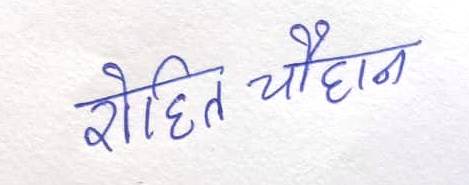 रोहित चौहान